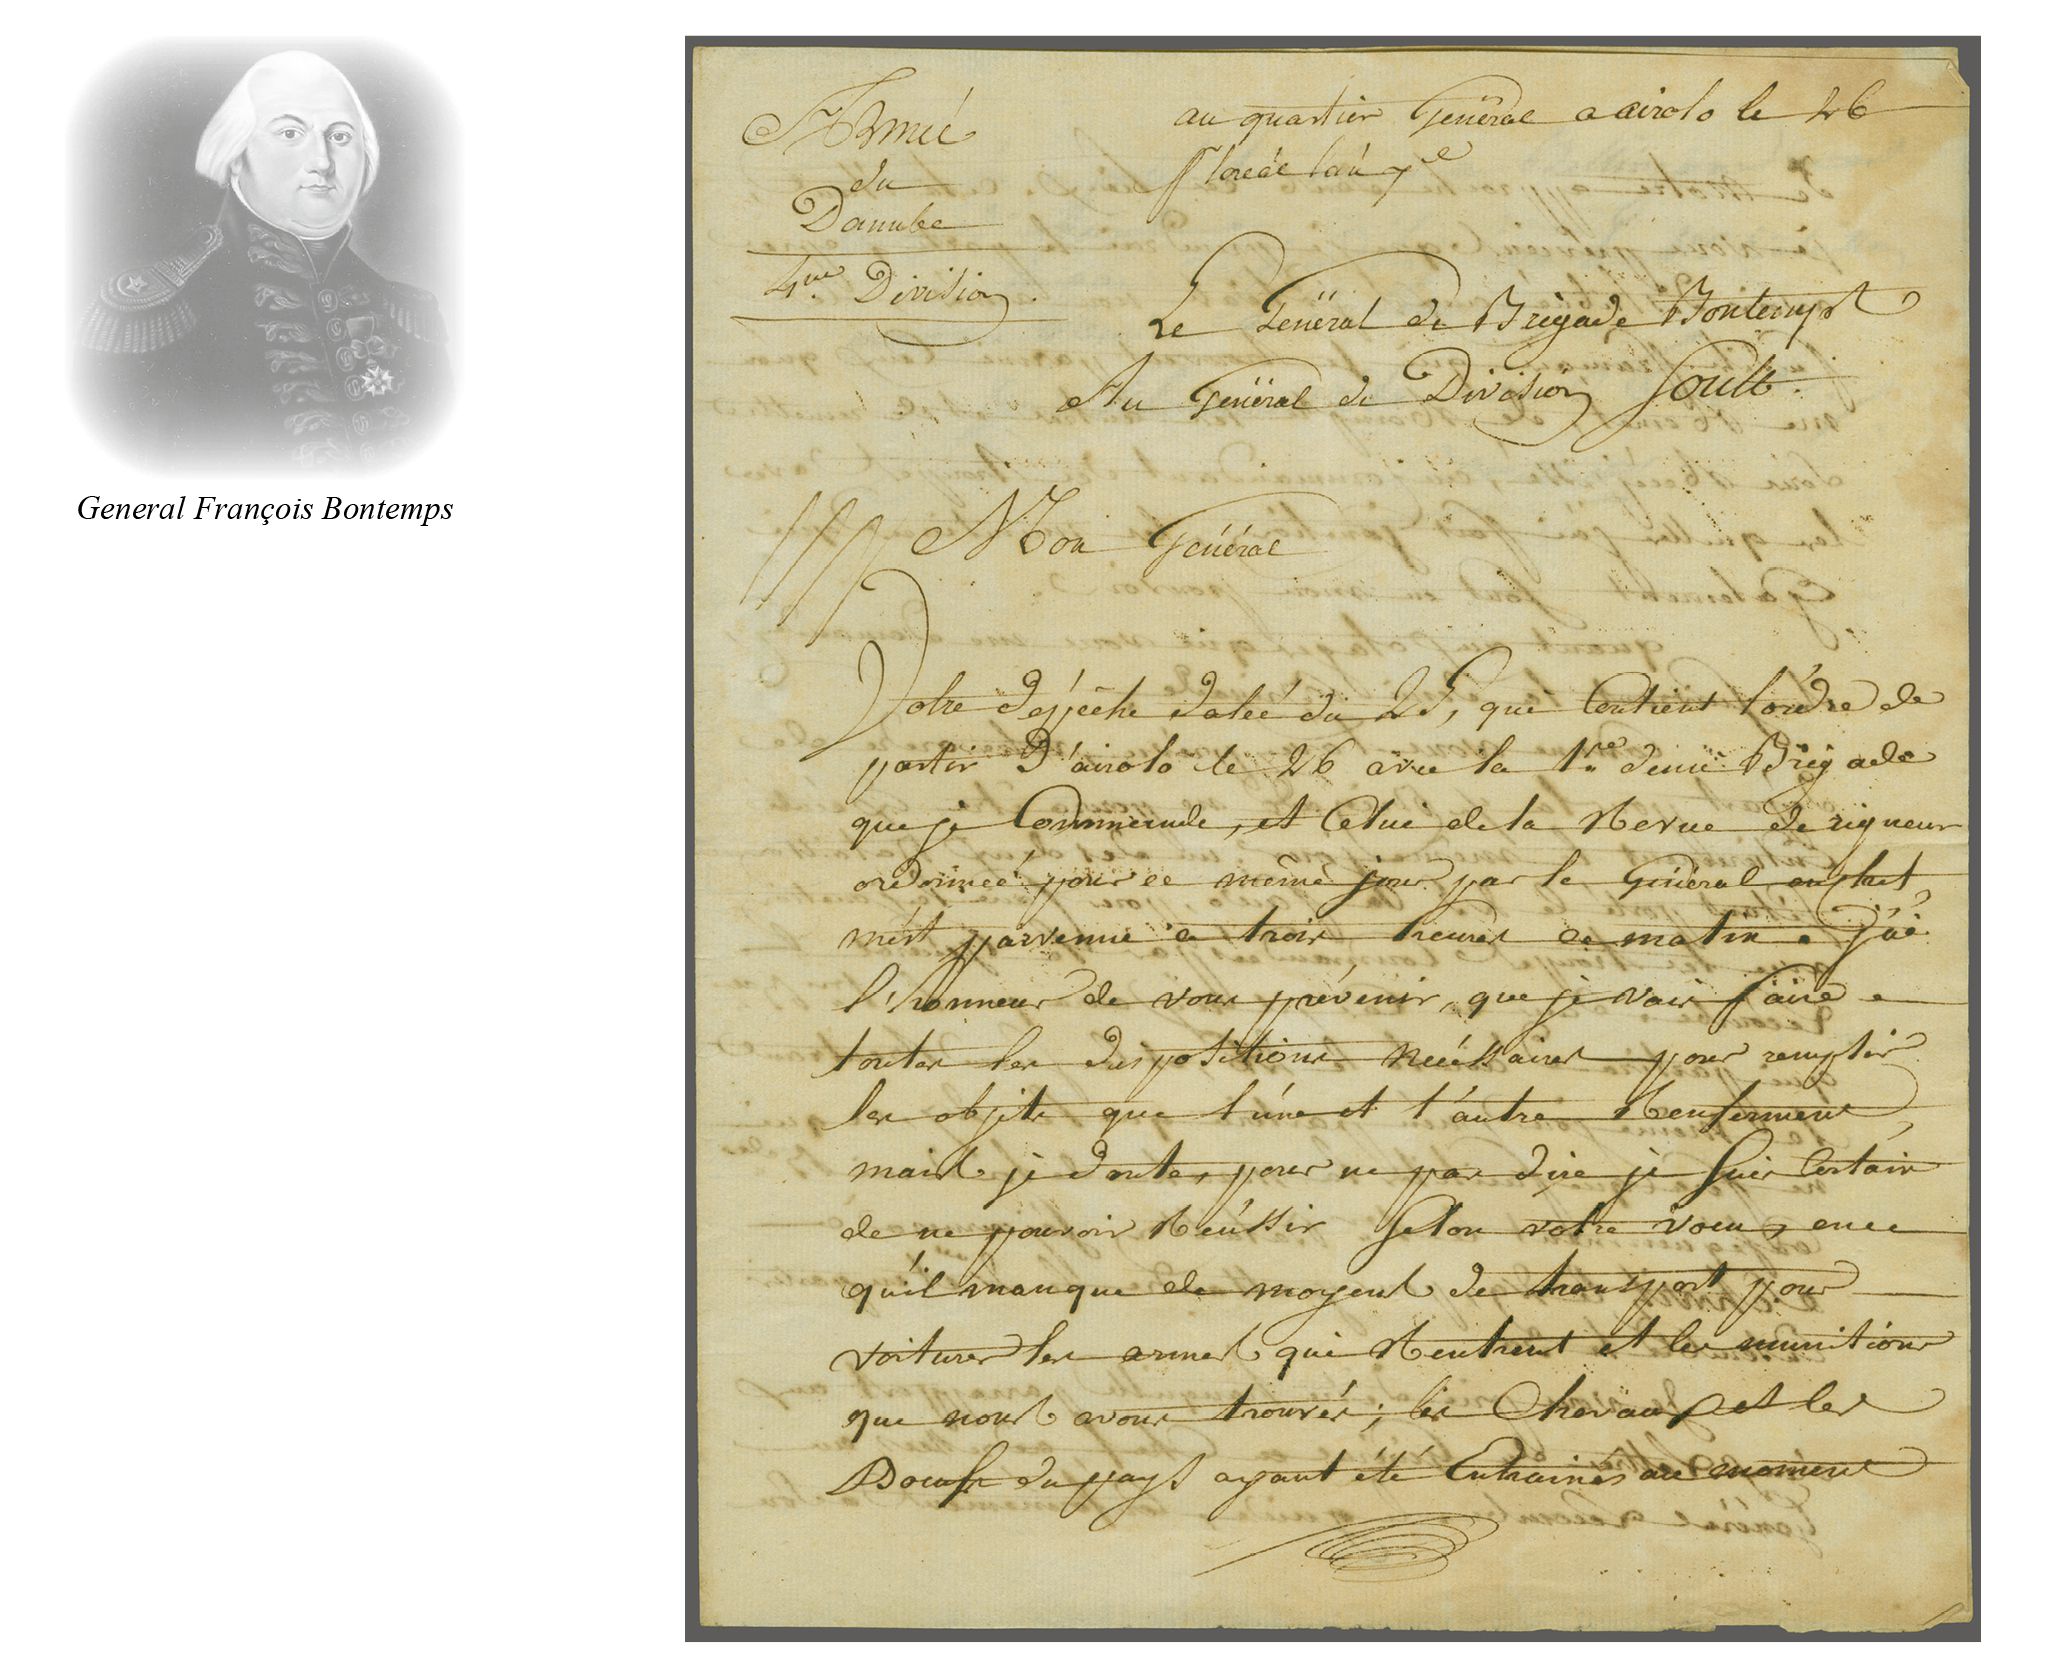 General François Bontemps
Armée
du
Danube
4me. Division.
au quartier Général a airolo le 26
floréal l'an 7e
Le Général de Brigade Bontemps
Au Général de Division Soult.
Mon Général
Votre dépêche datée du 25, qui Contient l'ordre de
partir d'airolo le 26 avec la 1re demie Brigade
que je Commende, et Celui de la Revue de rigueur
ordonnée pour ce même jour par le Général en chef,
m'est parvenue a trois heures ce matin. J'ai
l'honneur de vous prévenir, que je vais faire
toutes les dispositions nécéssaires pour remplir
les objets que l'une et l'autre Renferment,
mais je doute, pour ne pas dire je suis Certain
de ne pouvoir Réussir selon votre voeu, en ce
qu'il manque de moyens de transport pour
voiturer les armes qui Rentrent et les munitions
que nous avons trouvés; les Chevaux et les
Boeufs du pays ayant été Entrainés au moment